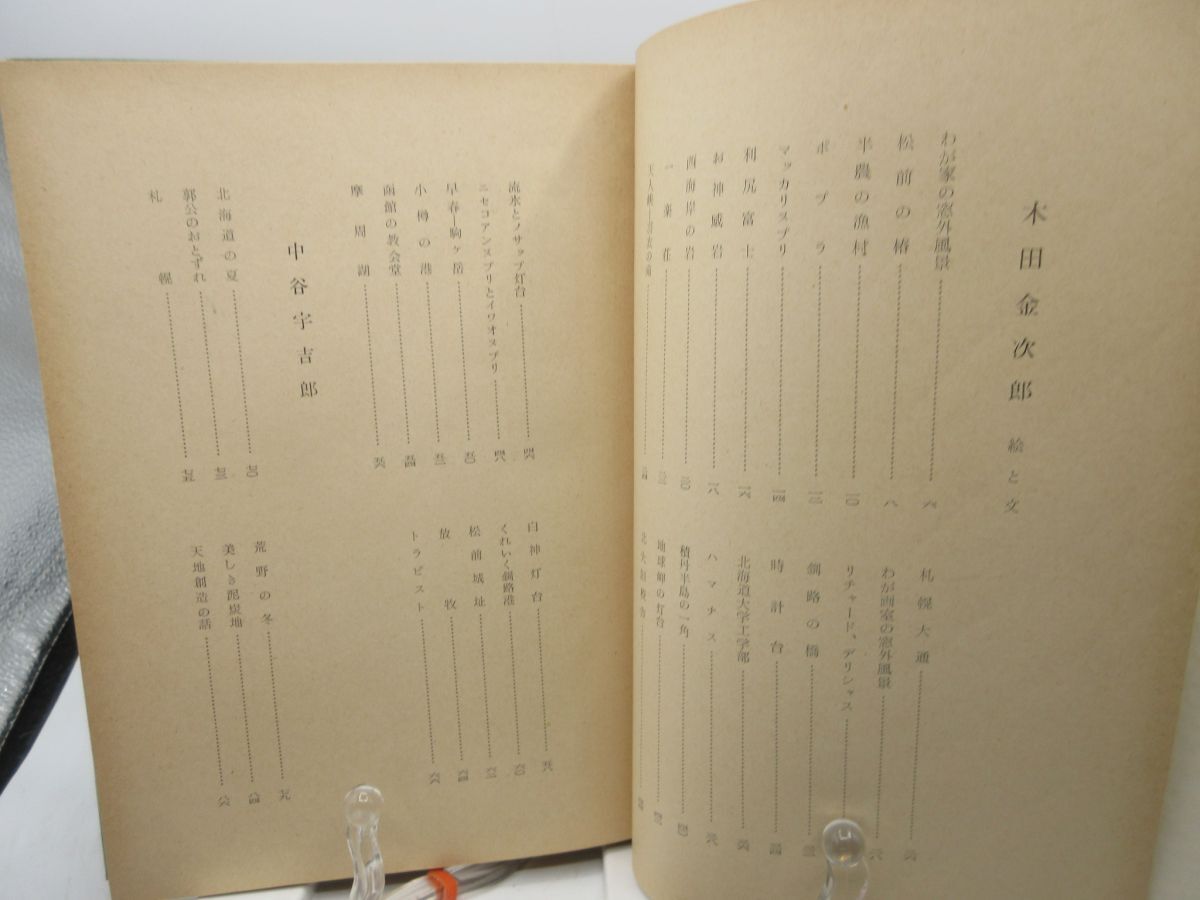 木田金次郎 絵と文
わが家の窓外風景 六
松前の椿 八
半農の漁村 一〇
ポプラ 一二
マッカリヌプリ 一四
利尻富士 一六
お神威岩 一八
西海岸の岩 二〇
一楽荘
札幌大通
わが画室の窓外風景
リチャード、デリシャス
釧路の橋
時計台
北海道大学工学部
ハマナス
積丹半島の一角
地球岬の灯台
流氷とノサップ灯台 四六
ニセコアンヌプリとイワオヌプリ 四八
早春―駒ヶ岳 五〇
小樽の港 五二
函館の教会堂 五四
摩周湖 五六
白神灯台 五八
くれいく釧路港 六〇
松前城址 六二
放牧 六四
トラピスト 六六
中谷宇吉郎
北海道の夏 七〇
郭公のおとずれ 七三
札幌 七五
荒野の冬 七九
美しき泥炭地 八四
天地創造の話 八六